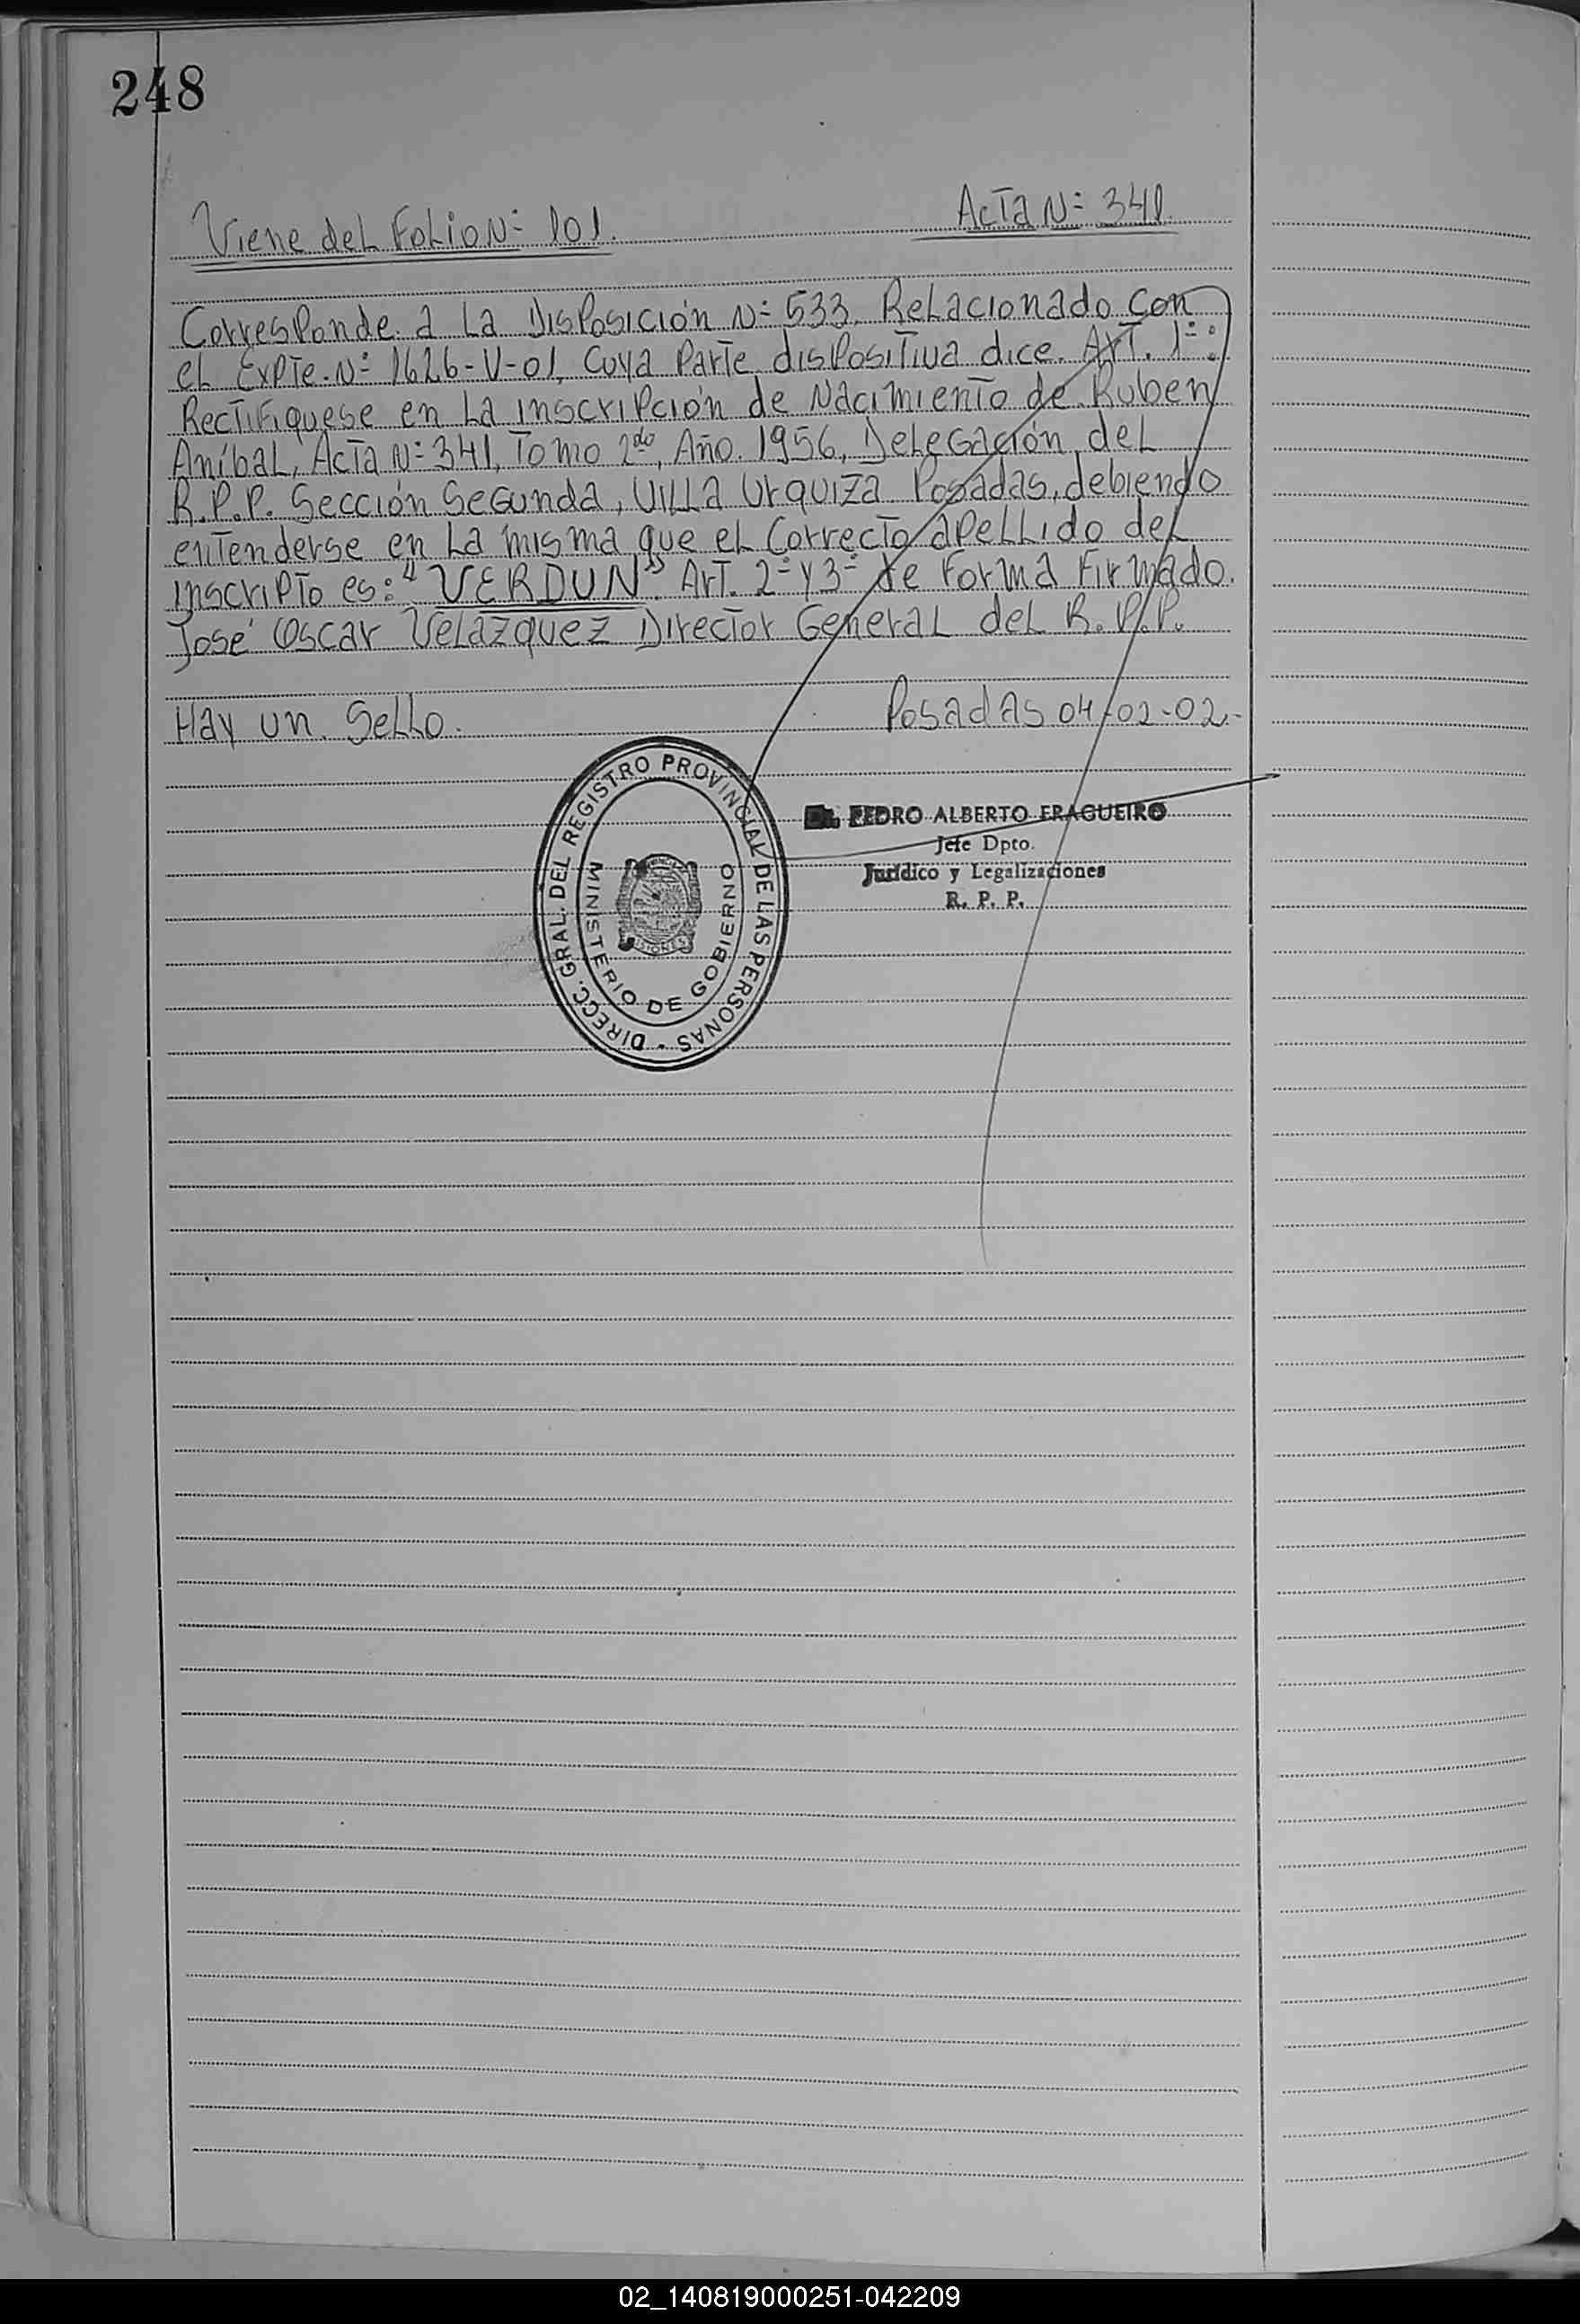 248
Viene del Folio Nº 101.
Acta Nº 341.
Corresponde a la Disposición Nº 533, Relacionado con
el Expte. Nº 1626-V-01, cuya Parte dispositiva dice. Art. 1º:
Rectifiquese en la inscripción de Nacimiento de Ruben
Aníbal, Acta Nº 341, Tomo 2do, Año. 1956, Delegación del
R.P.P. Sección Segunda, Villa Urquiza Posadas, debiendo
entenderse en la misma que el correcto apellido del
inscripto es: "VERDUN". Art. 2º y 3º de Forma Firmado.
José Oscar Velazquez Director General del R.P.P.
Hay un Sello.
Posadas 04-02-02.-
DIRECC. GRAL. DEL REGISTRO PROVINCIAL DE LAS PERSONAS -
MINISTERIO DE GOBIERNO
MISIONES
Dr. PEDRO ALBERTO FRAGUEIRO
Jefe Dpto.
Jurídico y Legalizaciones
R. P. P.
02_140819000251-042209